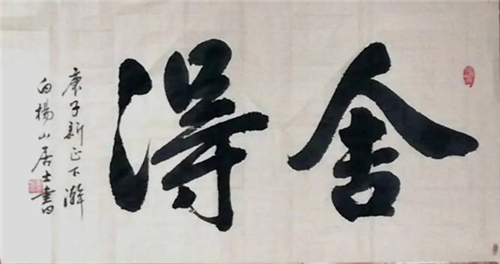 舍得
庚子新正下澣
白楊山居士書